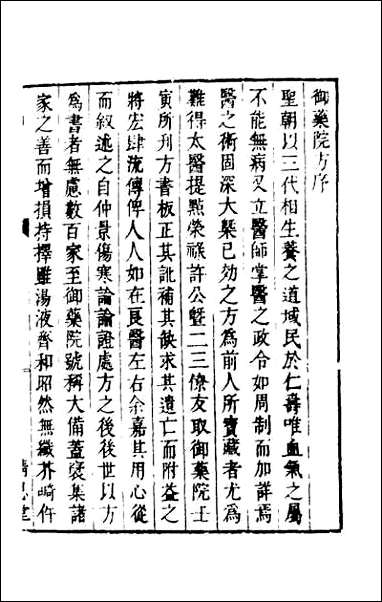 御藥院方序
聖朝以三代相生養之道域民於仁壽唯血氣之屬
不能無病又立醫師掌醫之政令如周制而加詳焉
醫之術固深大槩已効之方為前人所寳藏者尤為
難得太醫提點榮祿許公曁二三僚友取御藥院壬
寅所刋方書板正其訛補其缺求其遺亡而附益之
將宏肆流傳俾人人如在良醫左右余嘉其用心從
而叙述之自仲景傷寒論論證處方之後後世以方
為書者無慮數百家至御藥院號稱大備蓋裒集諸
家之善而增損持擇雖湯液齊和昭然無纖芥崎仵